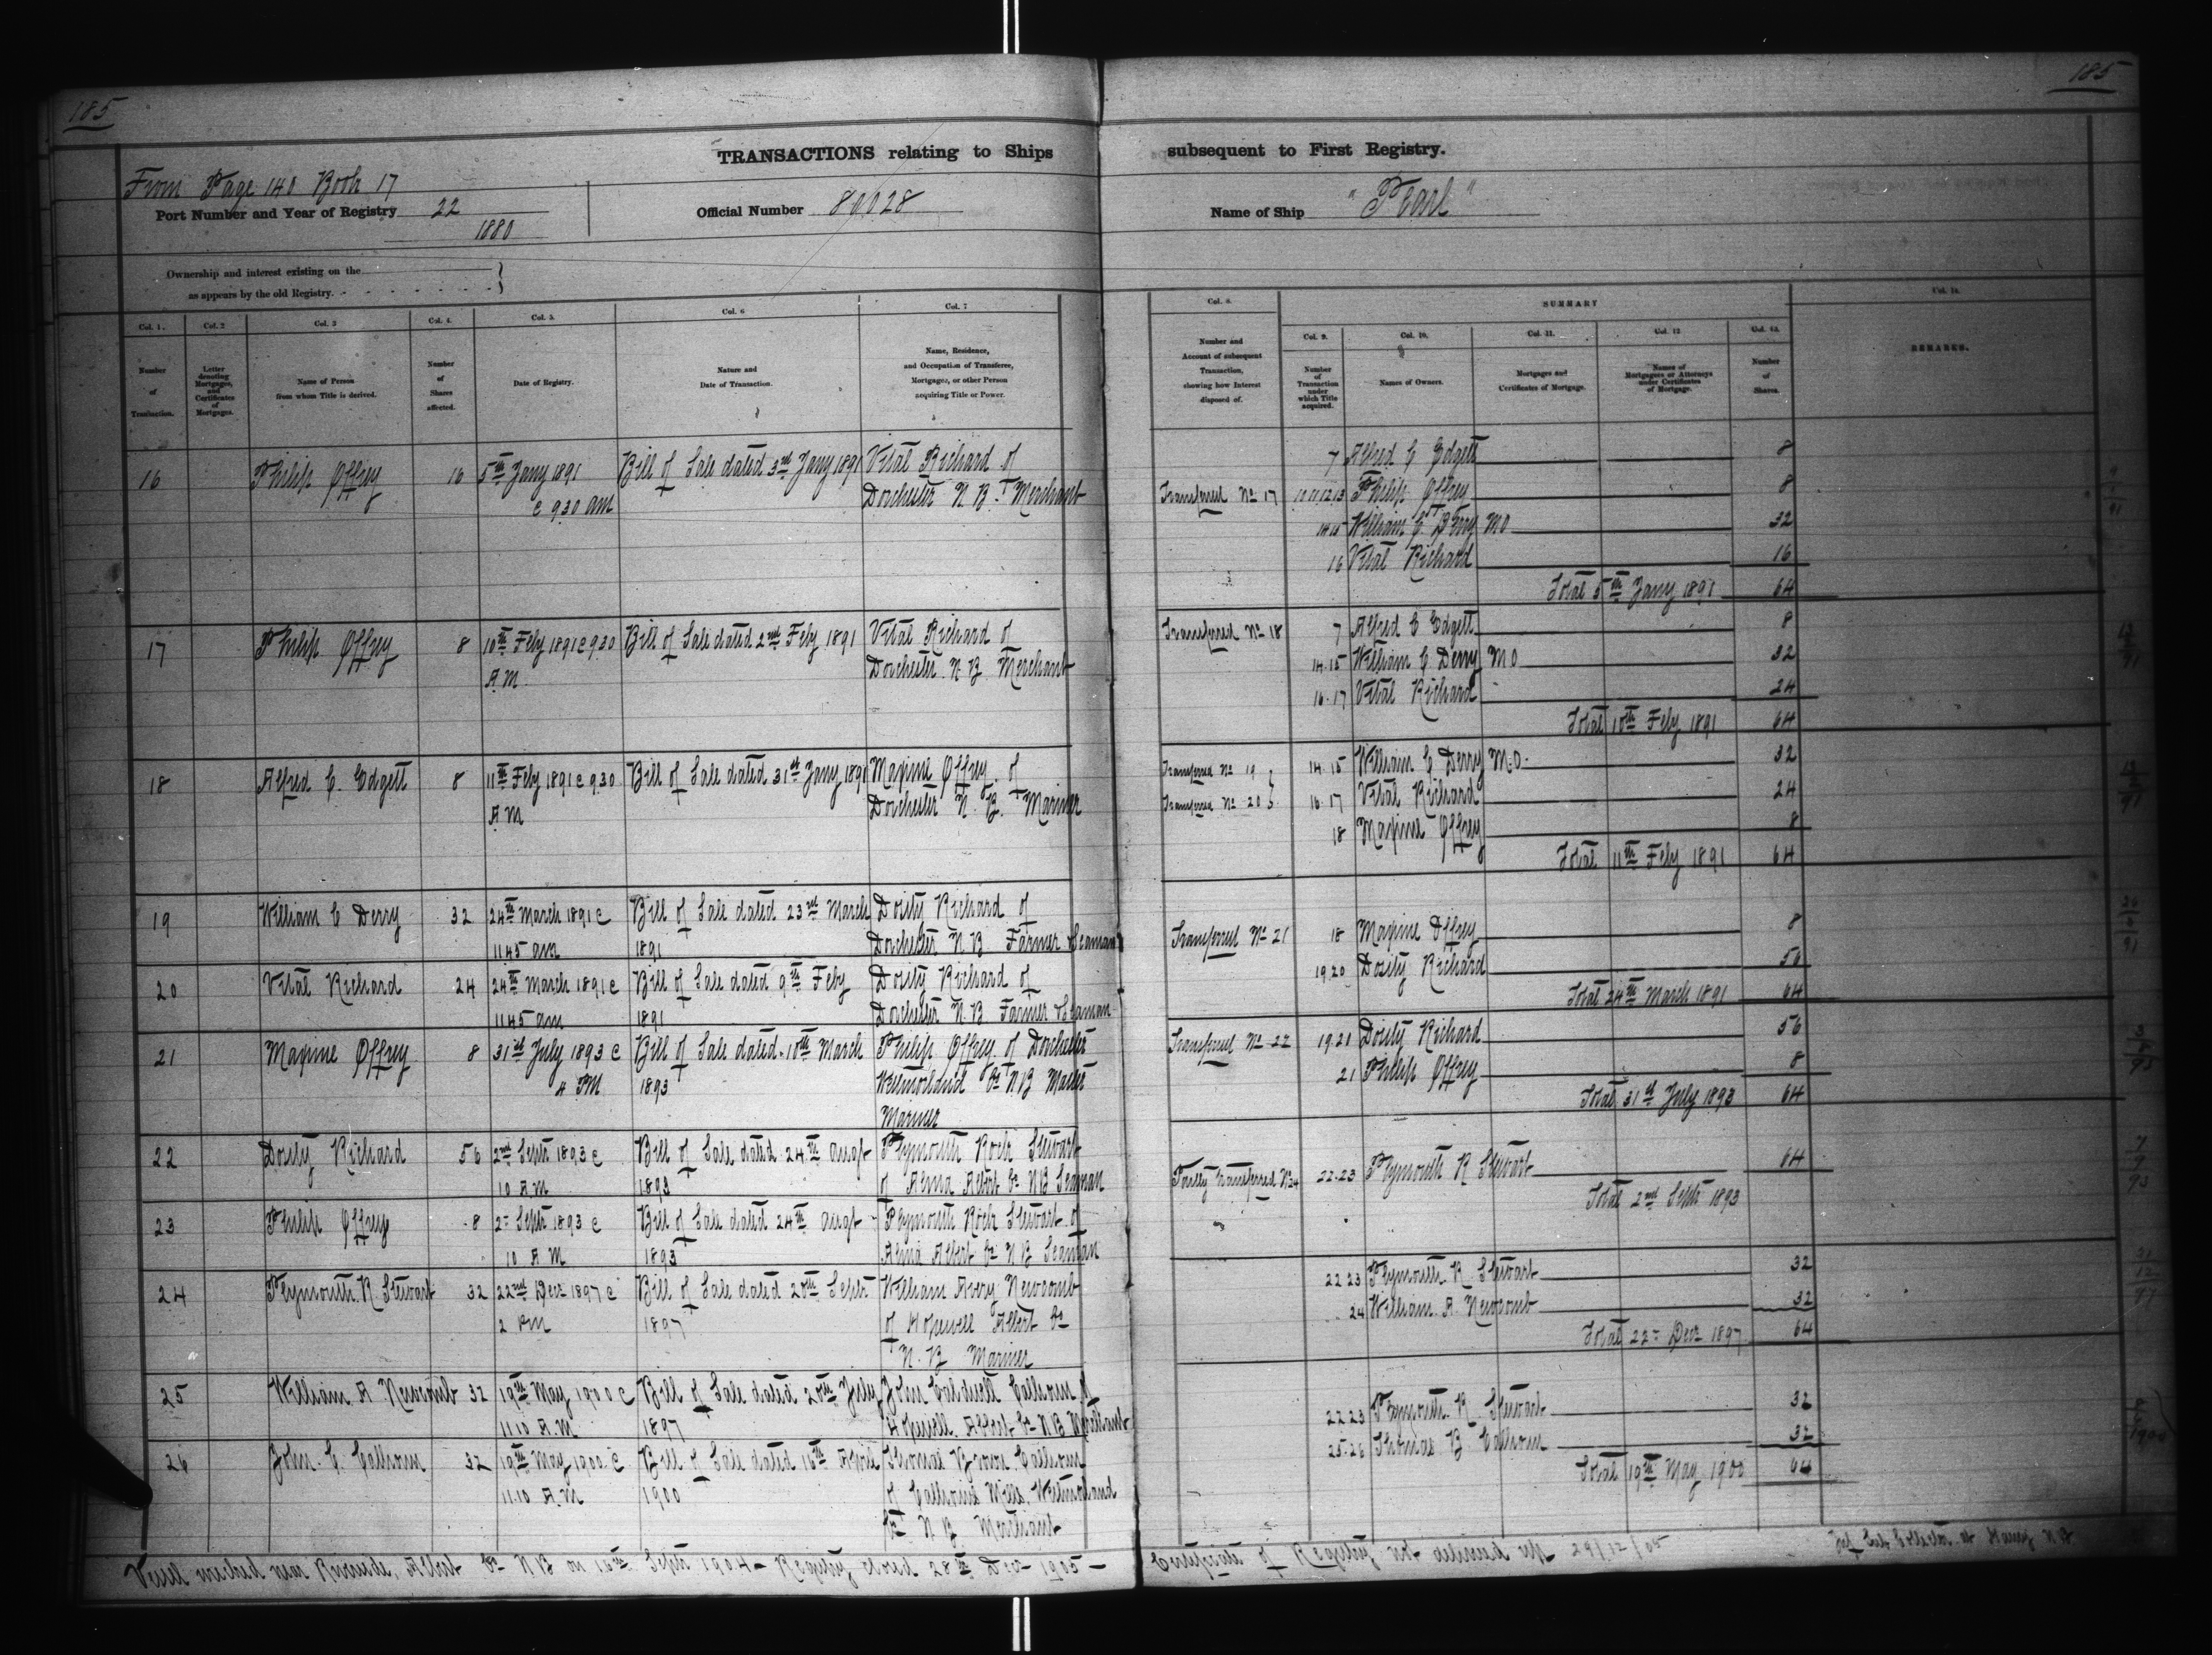 185
185
TRANSACTIONS relating to Ships subsequent to First Registry.
From Page 140 Book 17
Port Number and Year of Registry 22
1880
Official Number 80028
Name of Ship "Pearl"
Ownership and interest existing on the
as appears by the old Registry.
Col. 1. Col. 2 Col. 3 Col. 4. Col. 5. Col. 6 Col. 7
Number of Transaction.
Letter denoting Mortgages, and Certificates of Mortgages.
Name of Person from whom Title is derived.
Number of Shares affected.
Date of Registry.
Nature and Date of Transaction.
Name, Residence, and Occupation of Transferee, Mortgagee, or other Person acquiring Title or Power.
16 Philip Offrey 16 5th Jany 1891 Bill of Sale dated 3rd Jany 1891 Vital Richard of
@ 9.30 am Dorchester N.B. Merchant
17 Philip Offrey 8 10th Feby 1891 @ 9.30 Bill of Sale dated 2nd Feby 1891 Vital Richard of
A.M. Dorchester N.B. Merchant
18 Alfred C. Edgett 8 11th Feby 1891 @ 9.30 Bill of Sale dated 31st Jany 1891 Maxime Offrey of
A M Dorchester N.B. Mariner
19 William C Derry 32 24th March 1891 @ Bill of Sale dated 23rd March Dosity Richard of
11.45 am 1891 Dorchester N.B. Farmer & Seaman
20 Vital Richard 24 24th March 1891 @ Bill of Sale dated 9th Feby Dosity Richard of
11.45 am 1891 Dorchester N.B. Farmer & Seaman
21 Maxime Offrey 8 31st July 1893 @ Bill of Sale dated 10th March Philip Offrey of Dorchester
4 PM 1893 Westmorland Co N.B Master
Mariner
22 Dosity Richard 56 2nd Septr 1893 @ Bill of Sale dated 24th Augt Plymouth Rock Stewart
10 A M 1893 of Alma Albert Co N B Seaman
23 Philip Offrey 8 2nd Septr 1893 @ Bill of Sale dated 24th Augt Plymouth Rock Stewart of
10 A M 1893 Alma Albert Co N B Seaman
24 Plymouth R Stewart 32 22nd Decr 1897 @ Bill of Sale dated 20th Septr William Avery Newcomb
2 PM 1897 of Hopewell Albert Co
N.B Mariner
25 William A Newcomb 32 19th May 1900 @ Bill of Sale dated 20th July John Caldwell Calhoun of
11.10 A.M 1897 Hopewell Albert Co N B Merchant
26 John C. Calhoun 32 19th May 1900 @ Bill of Sale dated 16th April Thomas Brown Calhoun
11.10 A.M 1900 of Calhouns Mills, Westmorland
Co N B Merchant
Col. 8. SUMMARY Col. 14.
Col. 9. Col. 10. Col. 11. Col. 12 Col. 13.
Number and Account of subsequent Transaction, showing how Interest disposed of.
Number of Transaction under which Title acquired.
Names of Owners.
Mortgages and Certificates of Mortgage.
Names of Mortgagees or Attorneys under Certificates of Mortgage.
Number of Shares.
REMARKS.
7 Alfred C Edgett 8
Transferred No 17 10.11.12.13 Philip Offrey 8
14.15 William C. Derry M O 32
16 Vital Richard 16
Total 5th Jany 1891 64
Transferred No 18 7 Alfred C Edgett 8
14.15 William C. Derry M O 32
16.17 Vital Richard 24
Total 10th Feby 1891 64
Transferred No 19 14.15 William C Derry M.O. 32
Transferred No 20 16.17 Vital Richard 24
18 Maxime Offrey 8
Total 11th Feby 1891 64
Transferred No 21 18 Maxime Offrey 8
19.20 Dosity Richard 56
Total 24th March 1891 64
Transferred No 22 19.21 Dosity Richard 56
21 Philip Offrey 8
Total 31st July 1893 64
Partly transferred No 24 22.23 Plymouth R Stewart 64
Total 2nd Septr 1893
22.23 Plymouth R Stewart 32
24 William A. Newcomb 32
Total 22nd Decr 1897 64
22.23 Plymouth R Stewart 32
25.26 Thomas B. Calhoun 32
Total 19th May 1900 64
Vessel wrecked near Riverside, Albert Co N B on 16th Septr 1904 – Registry closed 28th Dec 1905 –
Certificate of Registry not delivered up 29/12/05
Sub Collector at Harvey N B